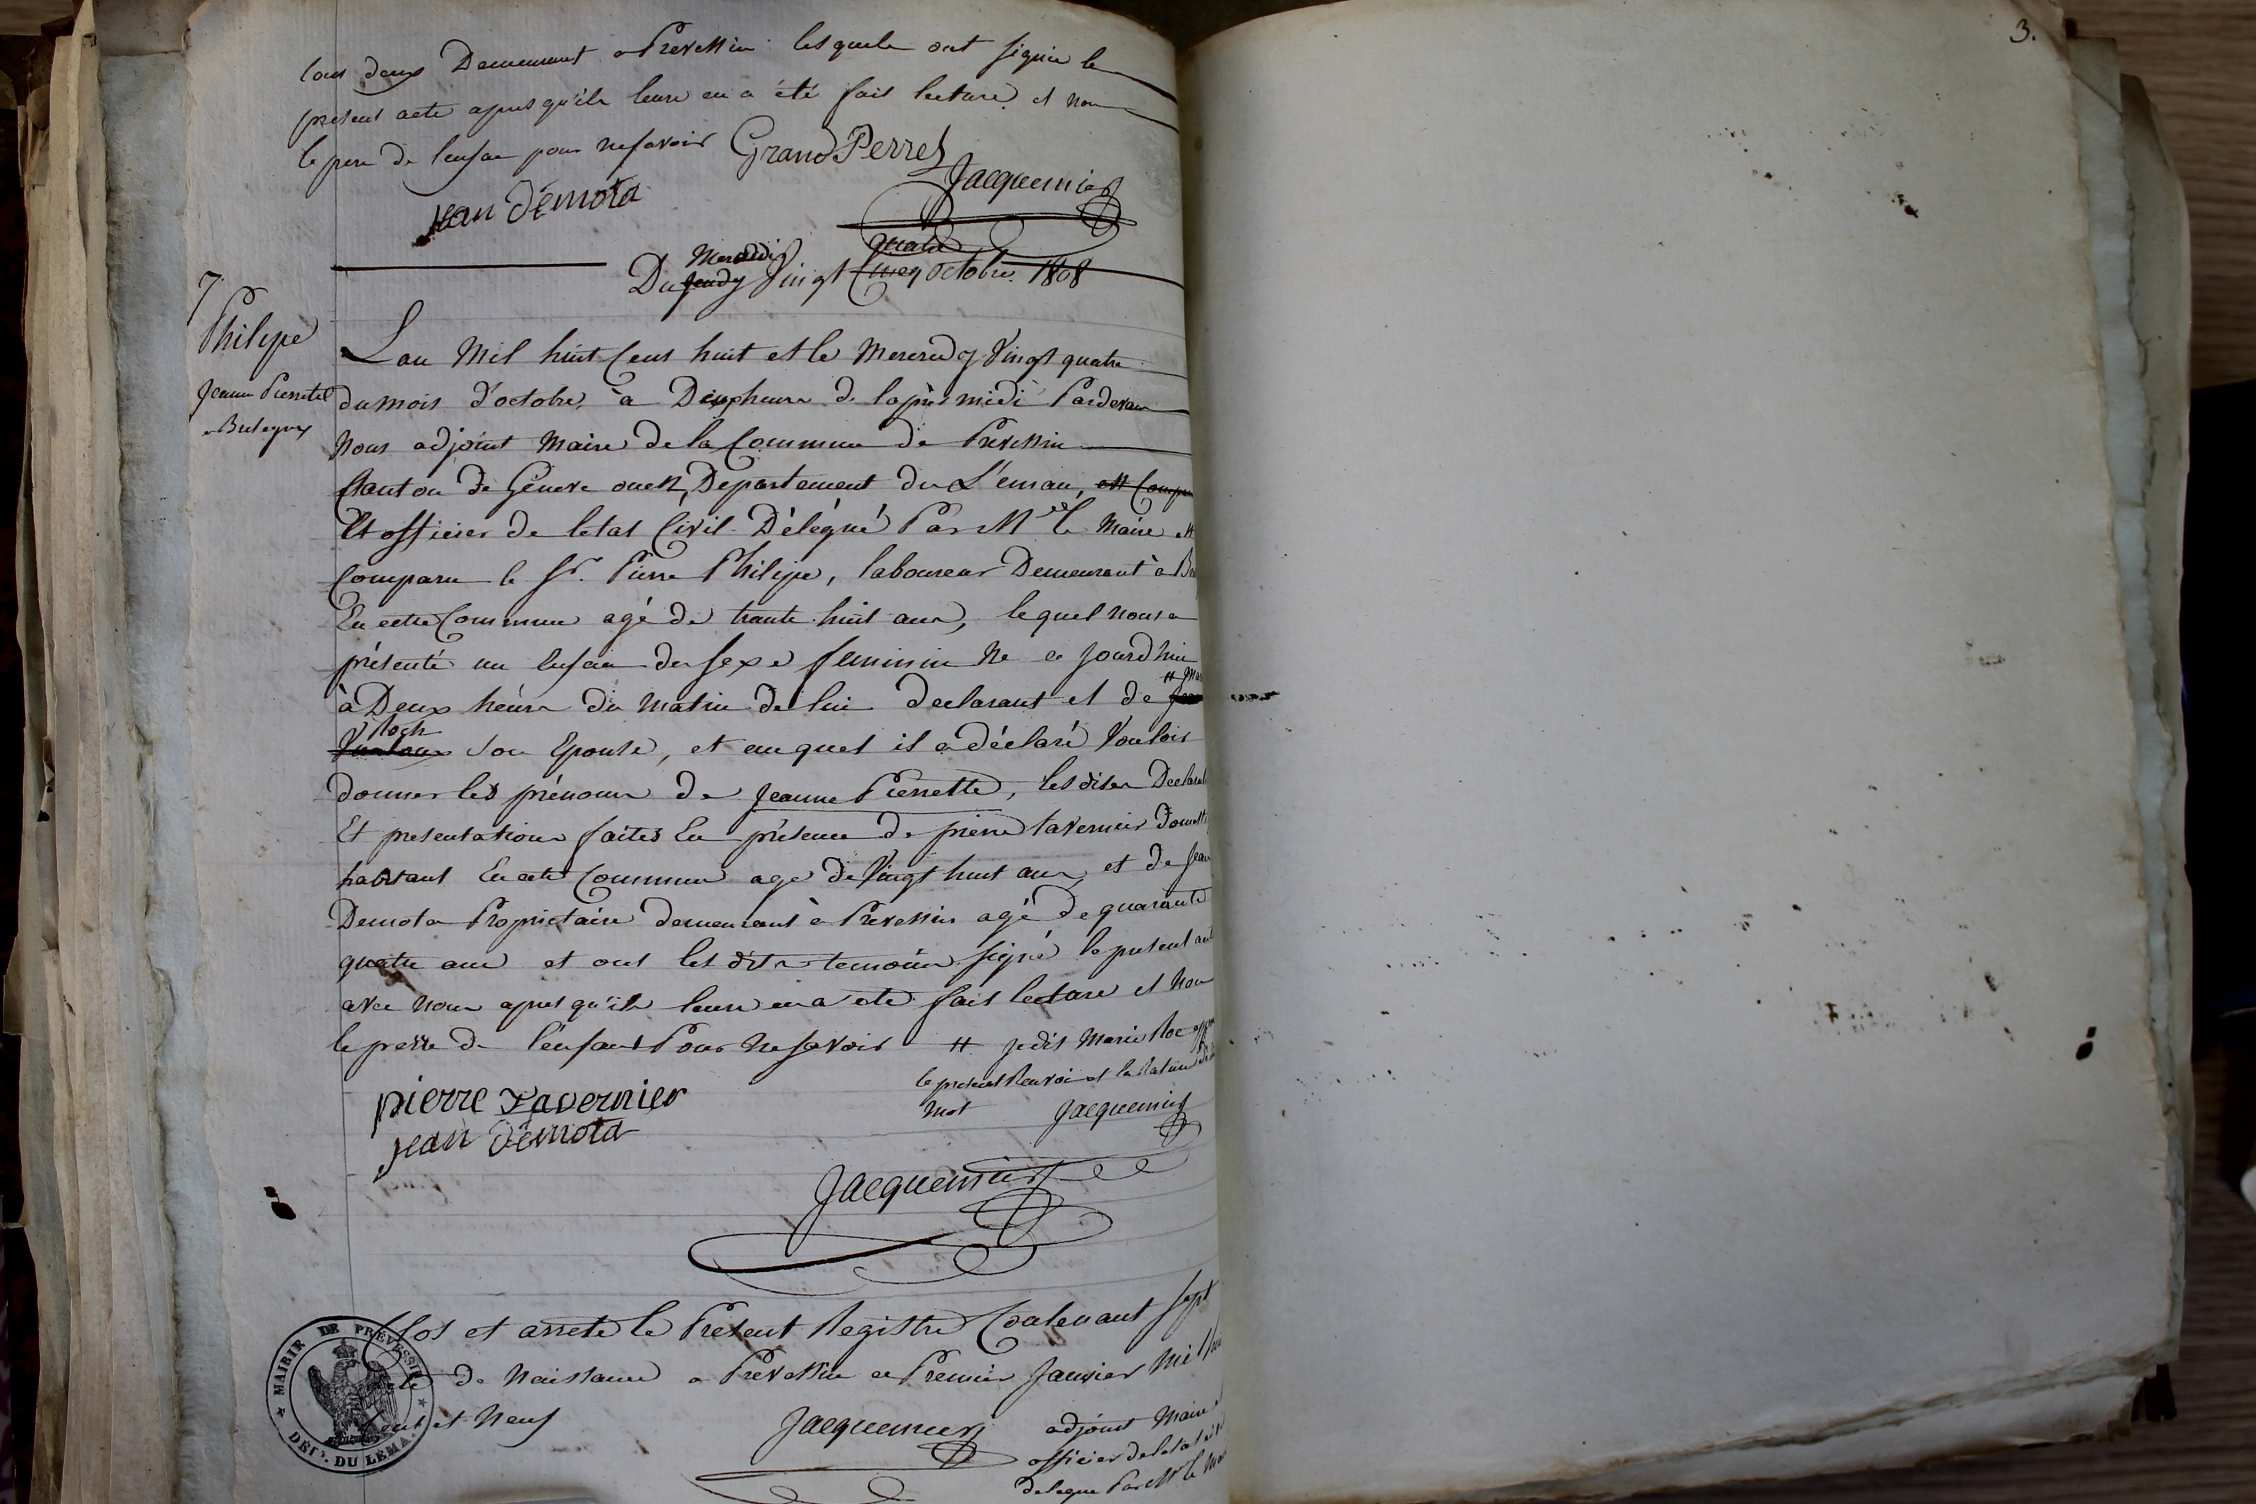 3.
tous deux Demeurant a Prevessin lesquels ont signée le
present acte apres qu'ils leure en a été fait lecture et non
le pere de lenfan pour ne savoir Grand Perret
Jacquemier
jean démota
Mercredi quatre
Du Jeudy Vingt Cinq octobre 1808
7.
Philipe
Jeanne Pierrette
Lan Mil huit Cent huit et le Mercredy Vingt quatre
du mois d'octobre, à Deux heure de l'après midi Pardevan
Nous adjoint Maire de la Commune de Prevessin
Canton de Géneve ouest, Departement du L'éman, est Compa
Et officier de letat Civil Délégué Par Mr le Maire est
Comparu le Sr. Pierre Philipe, laboureur Demeurant à
En cette Commune agé de trante huit ans, lequel nous a
présenté un enfan du sexe feminin Ne ce jourdhui
à Deux heure du matin de lui declarant et de # Mar
Roch son Epouse, et auquel il a déclaré Vouloir
donner les prénoms de Jeanne Pierrette, les dites Declarat
Et presentations faites En présence de pierre tavernier Domest
habitant En cete Commune age de Vingt huit ans et de Jean
Demota Propriétaire demeurant à Prevessin agé de quarante
quatre ans et ont les dits temoins signé le present acte
avec nous apres qu'ils leure en a eté fait lecture et Non
le perre de l'enfant Pour Ne savoir # je dis Marie Roc
le present Renvoi et la Rature
mot Jacquemier
pierre Tavernier
jean démota
Jacquemier
Clos et arrete le Present Registre Contenant sept
acte de Naissance a Prevessin ce Premier Janvier Mil hui
Cent et Neuf
Jacquemier adjoint Maire
officier de letat civil
delegue Par Mr le Mai
MAIRIE DE PRÉVESSIN
DÉPT. DU LÉMAN